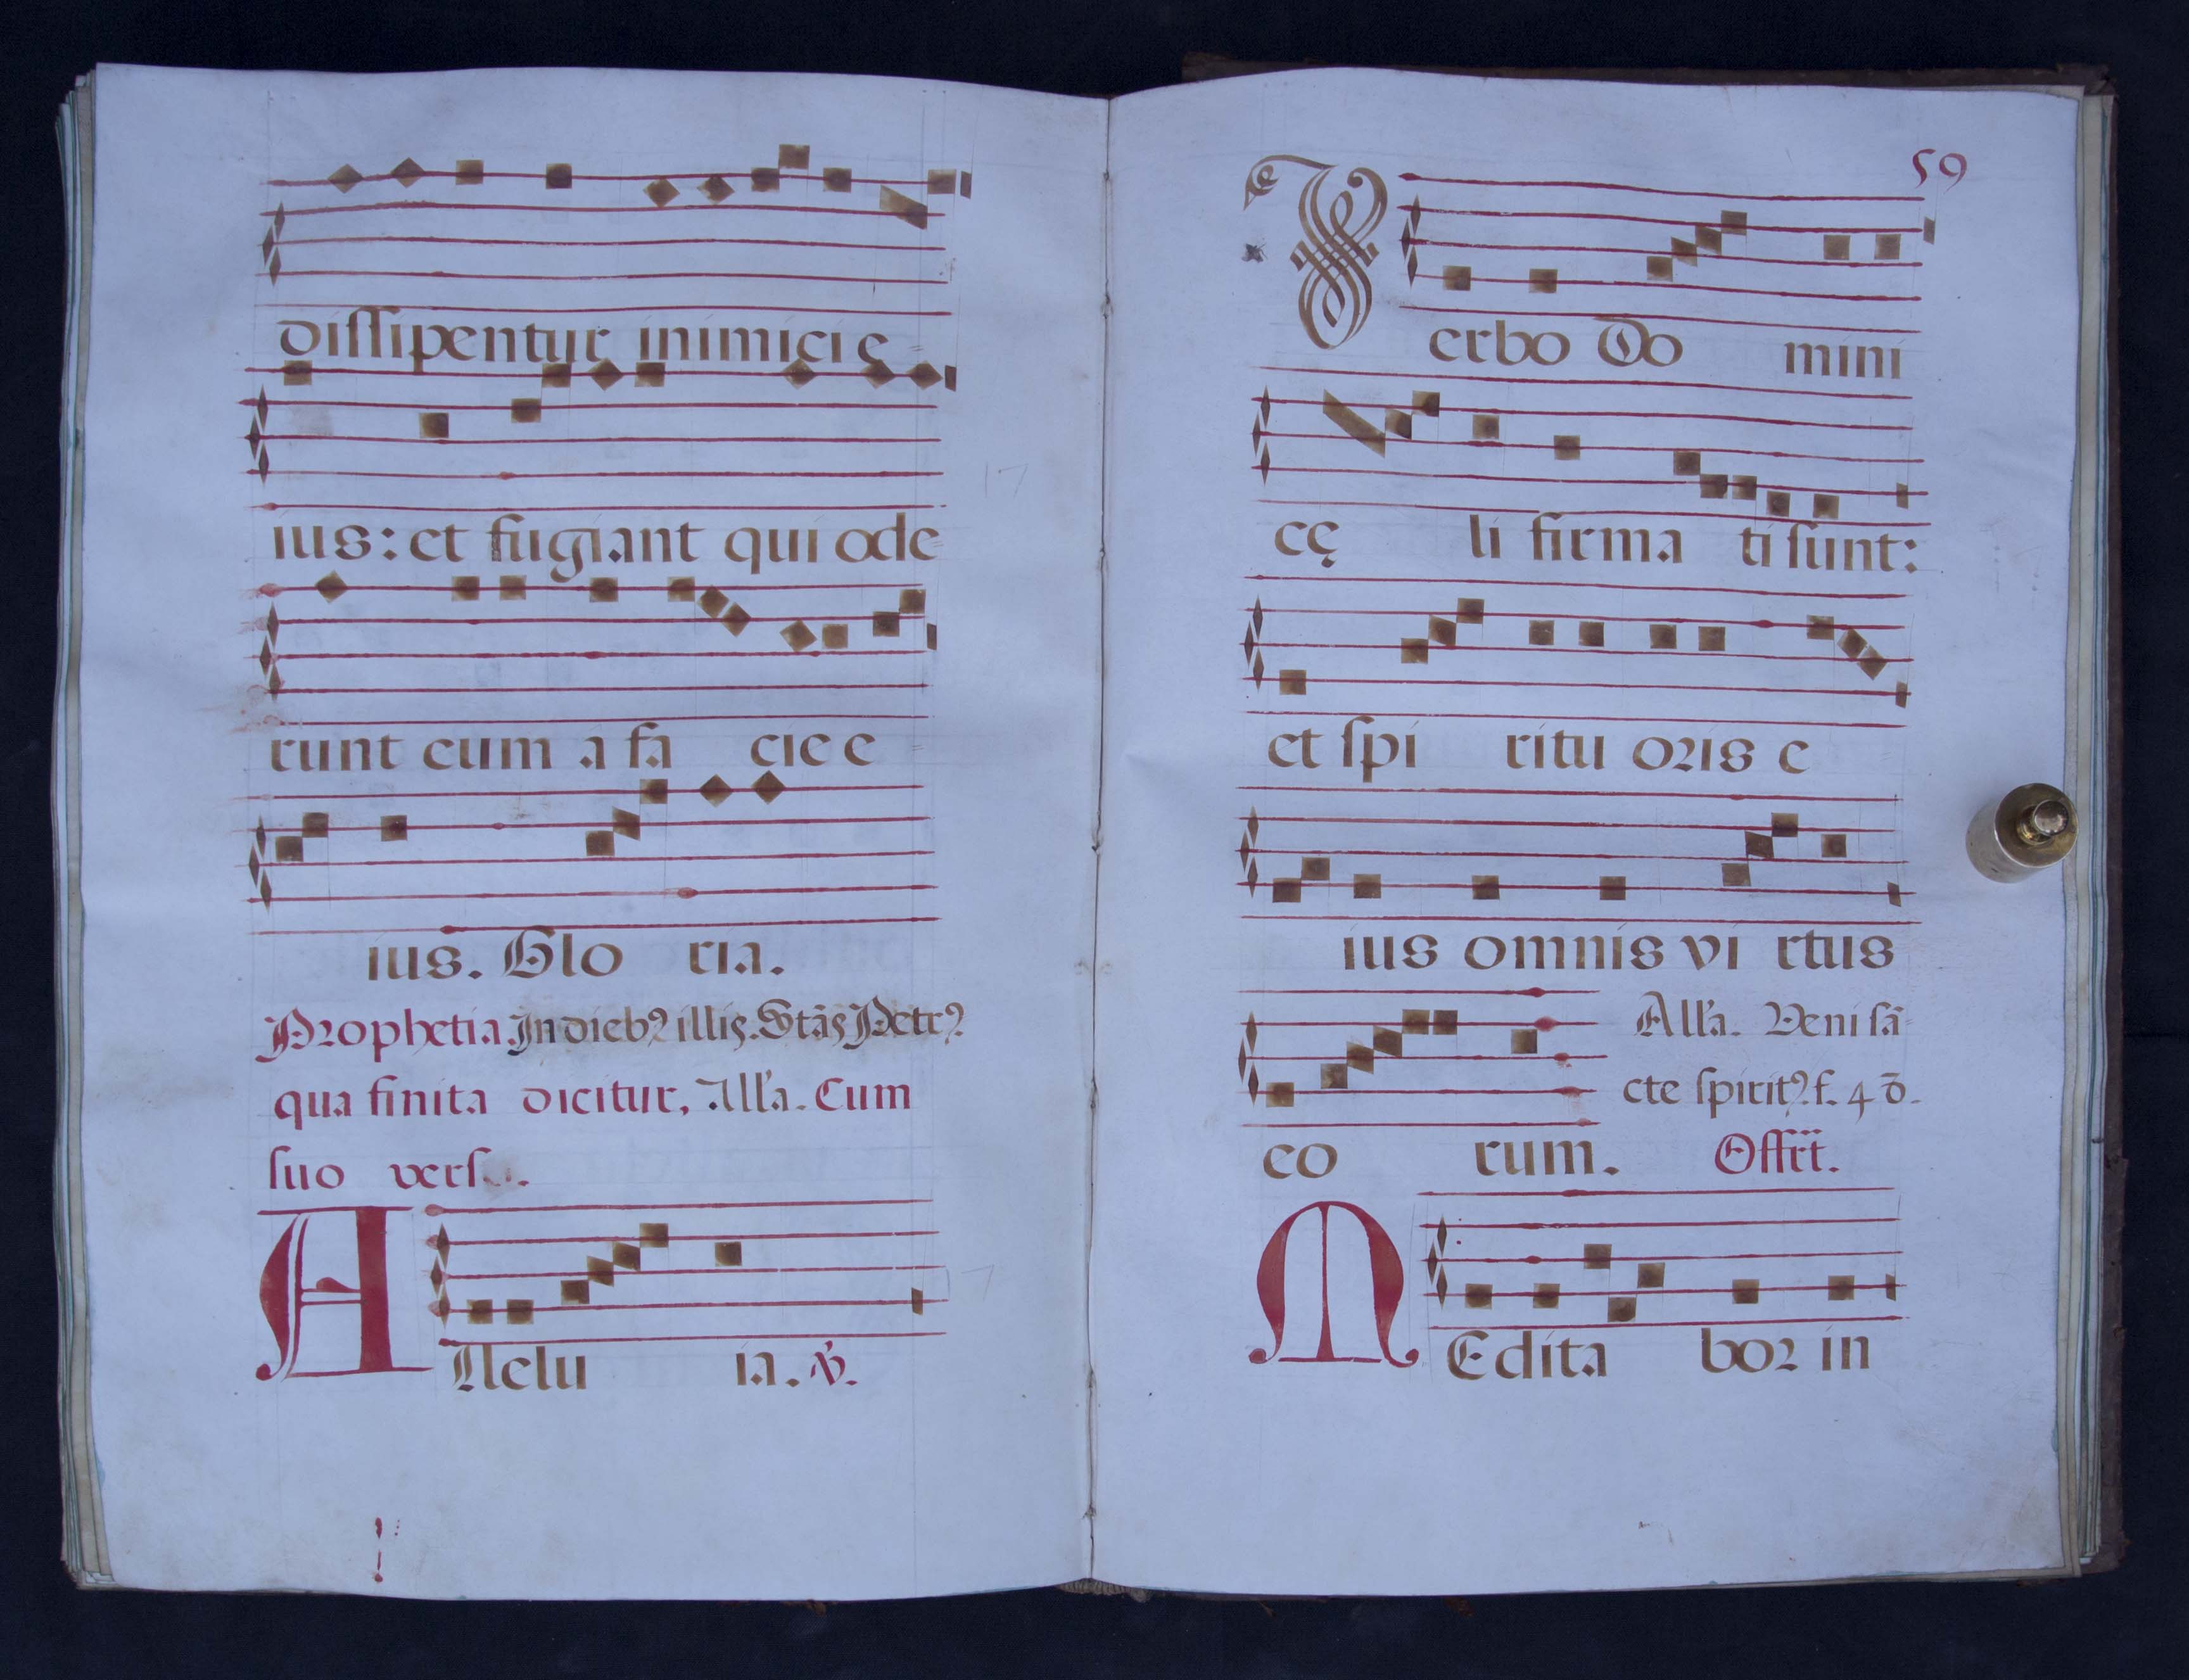 dissipentur inimici e
ius: et fugiant qui ode
runt eum a fa cie e
ius. Glo ria.
Prophetia. In dieb9 illis. Stās Petr9
qua finita dicitur, All'a. Cum
suo vers
Allelu ia. ℣.
59
Verbo Do mini
cę li firma ti sunt:
et spi ritu oris e
ius omnis vi rtus
All'a. Veni sā
cte spirit9. f. 4 ō.
eo rum. Offrt.
MEdita bor in